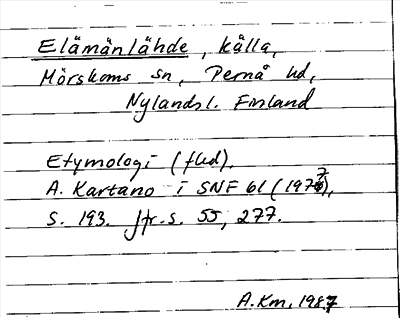 Elämänlähde, källa,
Mörskoms sn, Pernå hd,
Nylands l. Finland
Etymologi (fled).
A. Kartano i SNF 61 (1977),
s. 193. Jfr. s. 55, 277.
A.Km. 1987